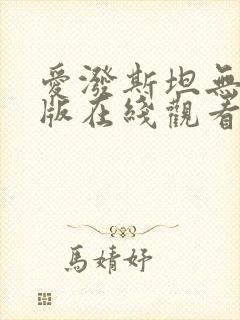 愛潑斯坦無
版在綫觀看
馬婧妤